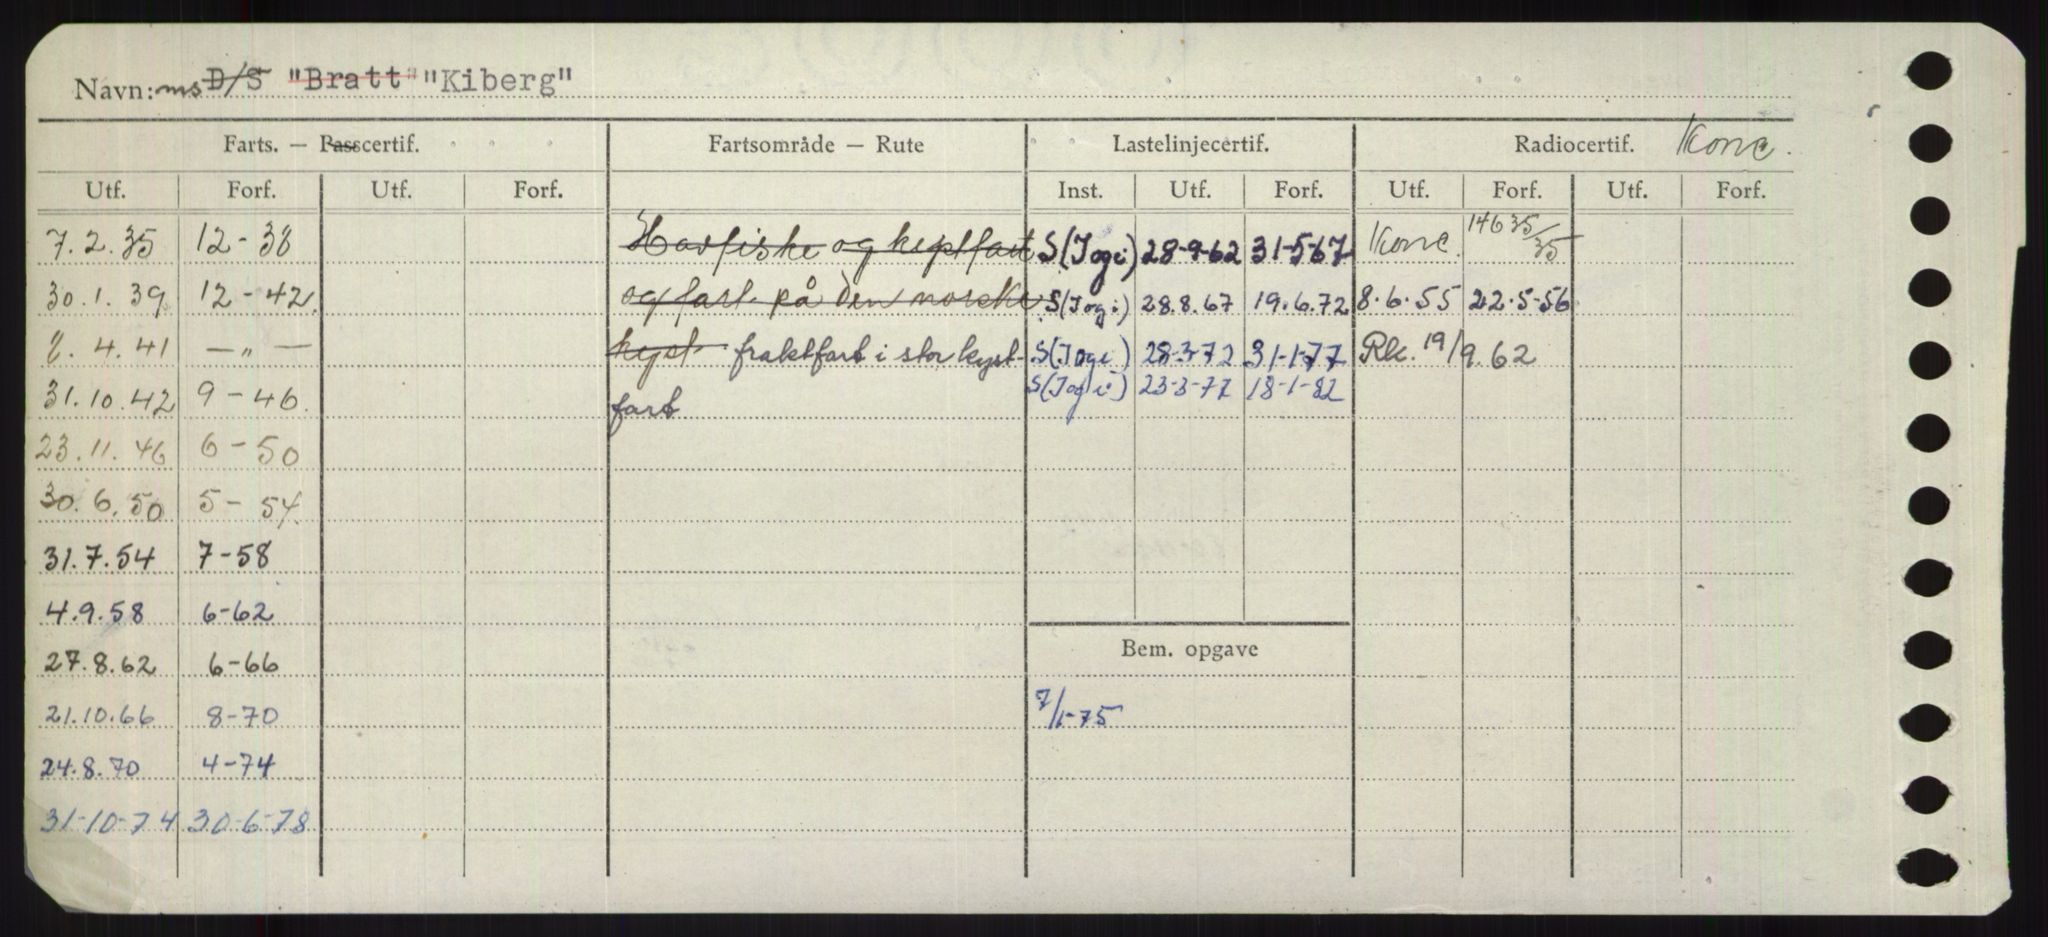 Navn: ms D/S "Bratt" "Kiberg"
Farts. — Passcertif. Fartsområde — Rute Lastelinjecertif. Radiocertif. Konc.
Utf. Forf. Utf. Forf. Inst. Utf. Forf. Utf. Forf. Utf. Forf.
7.2.35 12-38 Havfiske og kystfart S(Jogi) 28-9-62 31-5-67 Konc. 14635/35
30.1.39 12-42. og fart på den norske S(Jogi) 28.8.67 19.6.72 8.6.55 22.5-56
8.4.41 —„— kyst fraktfart i stor kyst- S(Jogi) 28-3-72 31-1-77 Rk. 19/9.62
31.10.42 9-46. fart S(Jogi) 23-3-77 18-1-82
23.11.46 6-50
30.6.50 5-54.
31.7.54 7-58
4.9.58 6-62
27.8.62 6-66 Bem. opgave
21.10.66 8-70 7/1-75
24.8.70 4-74
31-10-74 30-6-78